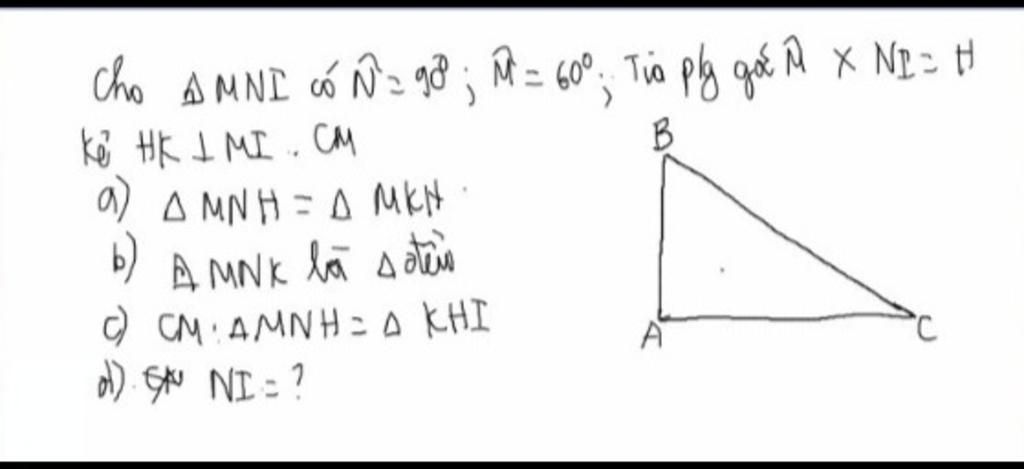 Cho Δ MNI có N̂ = 90°; M̂ = 60°; Tia p/g góc M̂ X NI = H
Kẻ HK ⊥ MI. CM
B
a) Δ MNH = Δ MKH
b) Δ MNK là Δ đều
c) CM: Δ MNH = Δ KHI
A
C
d) NI = ?